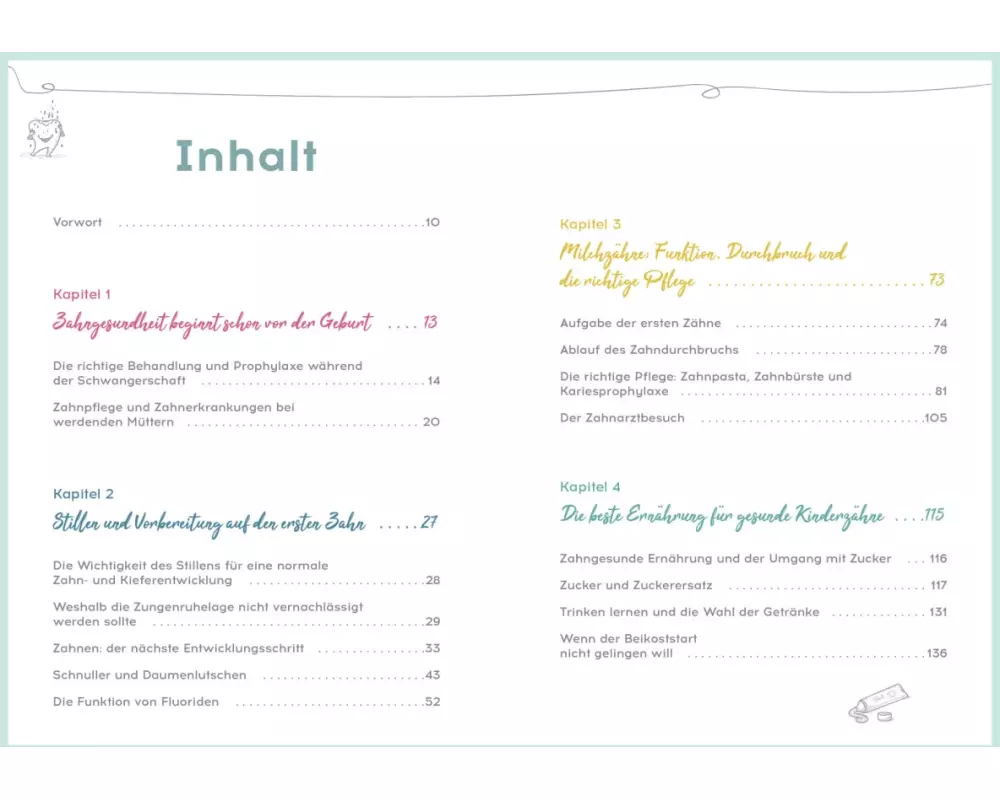 Inhalt
Vorwort . . . . . . . . . . . . . . . . . . . . . . . . . . . . . . . . . . . . . . . 10
Kapitel 1
Zahngesundheit beginnt schon vor der Geburt . . . . 13
Die richtige Behandlung und Prophylaxe während
der Schwangerschaft . . . . . . . . . . . . . . . . . . . . . . . . . . . . 14
Zahnpflege und Zahnerkrankungen bei
werdenden Müttern . . . . . . . . . . . . . . . . . . . . . . . . . . . . . 20
Kapitel 2
Stillen und Vorbereitung auf den ersten Zahn . . . . . 27
Die Wichtigkeit des Stillens für eine normale
Zahn- und Kieferentwicklung . . . . . . . . . . . . . . . . . . . . . . 28
Weshalb die Zungenruhelage nicht vernachlässigt
werden sollte . . . . . . . . . . . . . . . . . . . . . . . . . . . . . . . . . . 29
Zahnen: der nächste Entwicklungsschritt . . . . . . . . . . . . . 33
Schnuller und Daumenlutschen . . . . . . . . . . . . . . . . . . . . 43
Die Funktion von Fluoriden . . . . . . . . . . . . . . . . . . . . . . . . 52
Kapitel 3
Milchzähne: Funktion, Durchbruch und
die richtige Pflege . . . . . . . . . . . . . . . . . . . . . . . . . 73
Aufgabe der ersten Zähne . . . . . . . . . . . . . . . . . . . . . . . . 74
Ablauf des Zahndurchbruchs . . . . . . . . . . . . . . . . . . . . . . 78
Die richtige Pflege: Zahnpasta, Zahnbürste und
Kariesprophylaxe . . . . . . . . . . . . . . . . . . . . . . . . . . . . . . 81
Der Zahnarztbesuch . . . . . . . . . . . . . . . . . . . . . . . . . . . . 105
Kapitel 4
Die beste Ernährung für gesunde Kinderzähne . . . . 115
Zahngesunde Ernährung und der Umgang mit Zucker . . . 116
Zucker und Zuckerersatz . . . . . . . . . . . . . . . . . . . . . . . . 117
Trinken lernen und die Wahl der Getränke . . . . . . . . . . . . 131
Wenn der Beikoststart
nicht gelingen will . . . . . . . . . . . . . . . . . . . . . . . . . . . . . 136